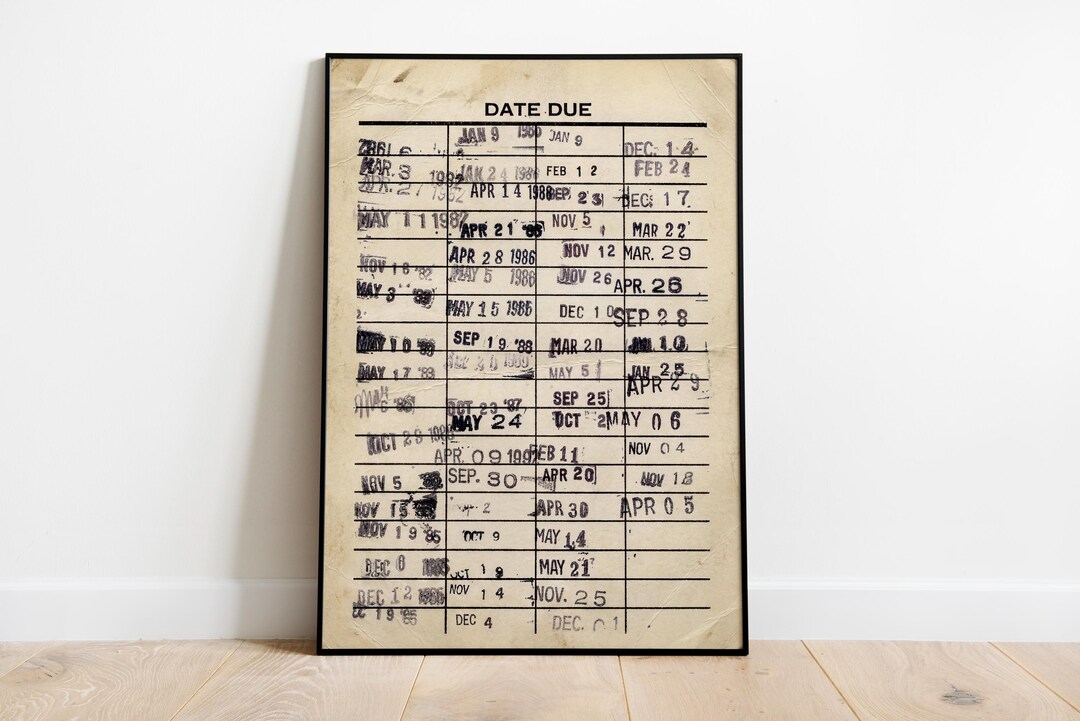 DATE DUE
MAR. 3 1982
APR. 27 1982
MAY 11 1982
NOV 16 '82
MAY 3 '83
MAY 10 '83
MAY 17 '83
OCT 29
NOV 5
NOV 15
NOV 19 '85
DEC 6 1985
DEC 12 1985
19 '85
JAN 9 1986
JAN 24 1986
APR 14 1986
APR 21 '86
APR 28 1986
MAY 5 1986
MAY 15 1986
SEP 19 '88
OCT 23 '87
MAY 24
APR. 09 1992
SEP. 30
2
OCT 9
OCT 19
NOV 14
DEC 4
JAN 9
FEB 12
SEP 23
NOV 5
NOV 12
NOV 26
DEC 10
MAR 20
MAY 5
SEP 25
OCT 2
FEB 11
APR 20
APR 30
MAY 14
MAY 21
NOV. 25
DEC. 01
DEC. 14
FEB 24
DEC. 17
MAR 22
MAR. 29
APR. 26
SEP 28
JUL 10
JAN 25
APR 29
MAY 06
NOV 04
NOV 18
APR 05